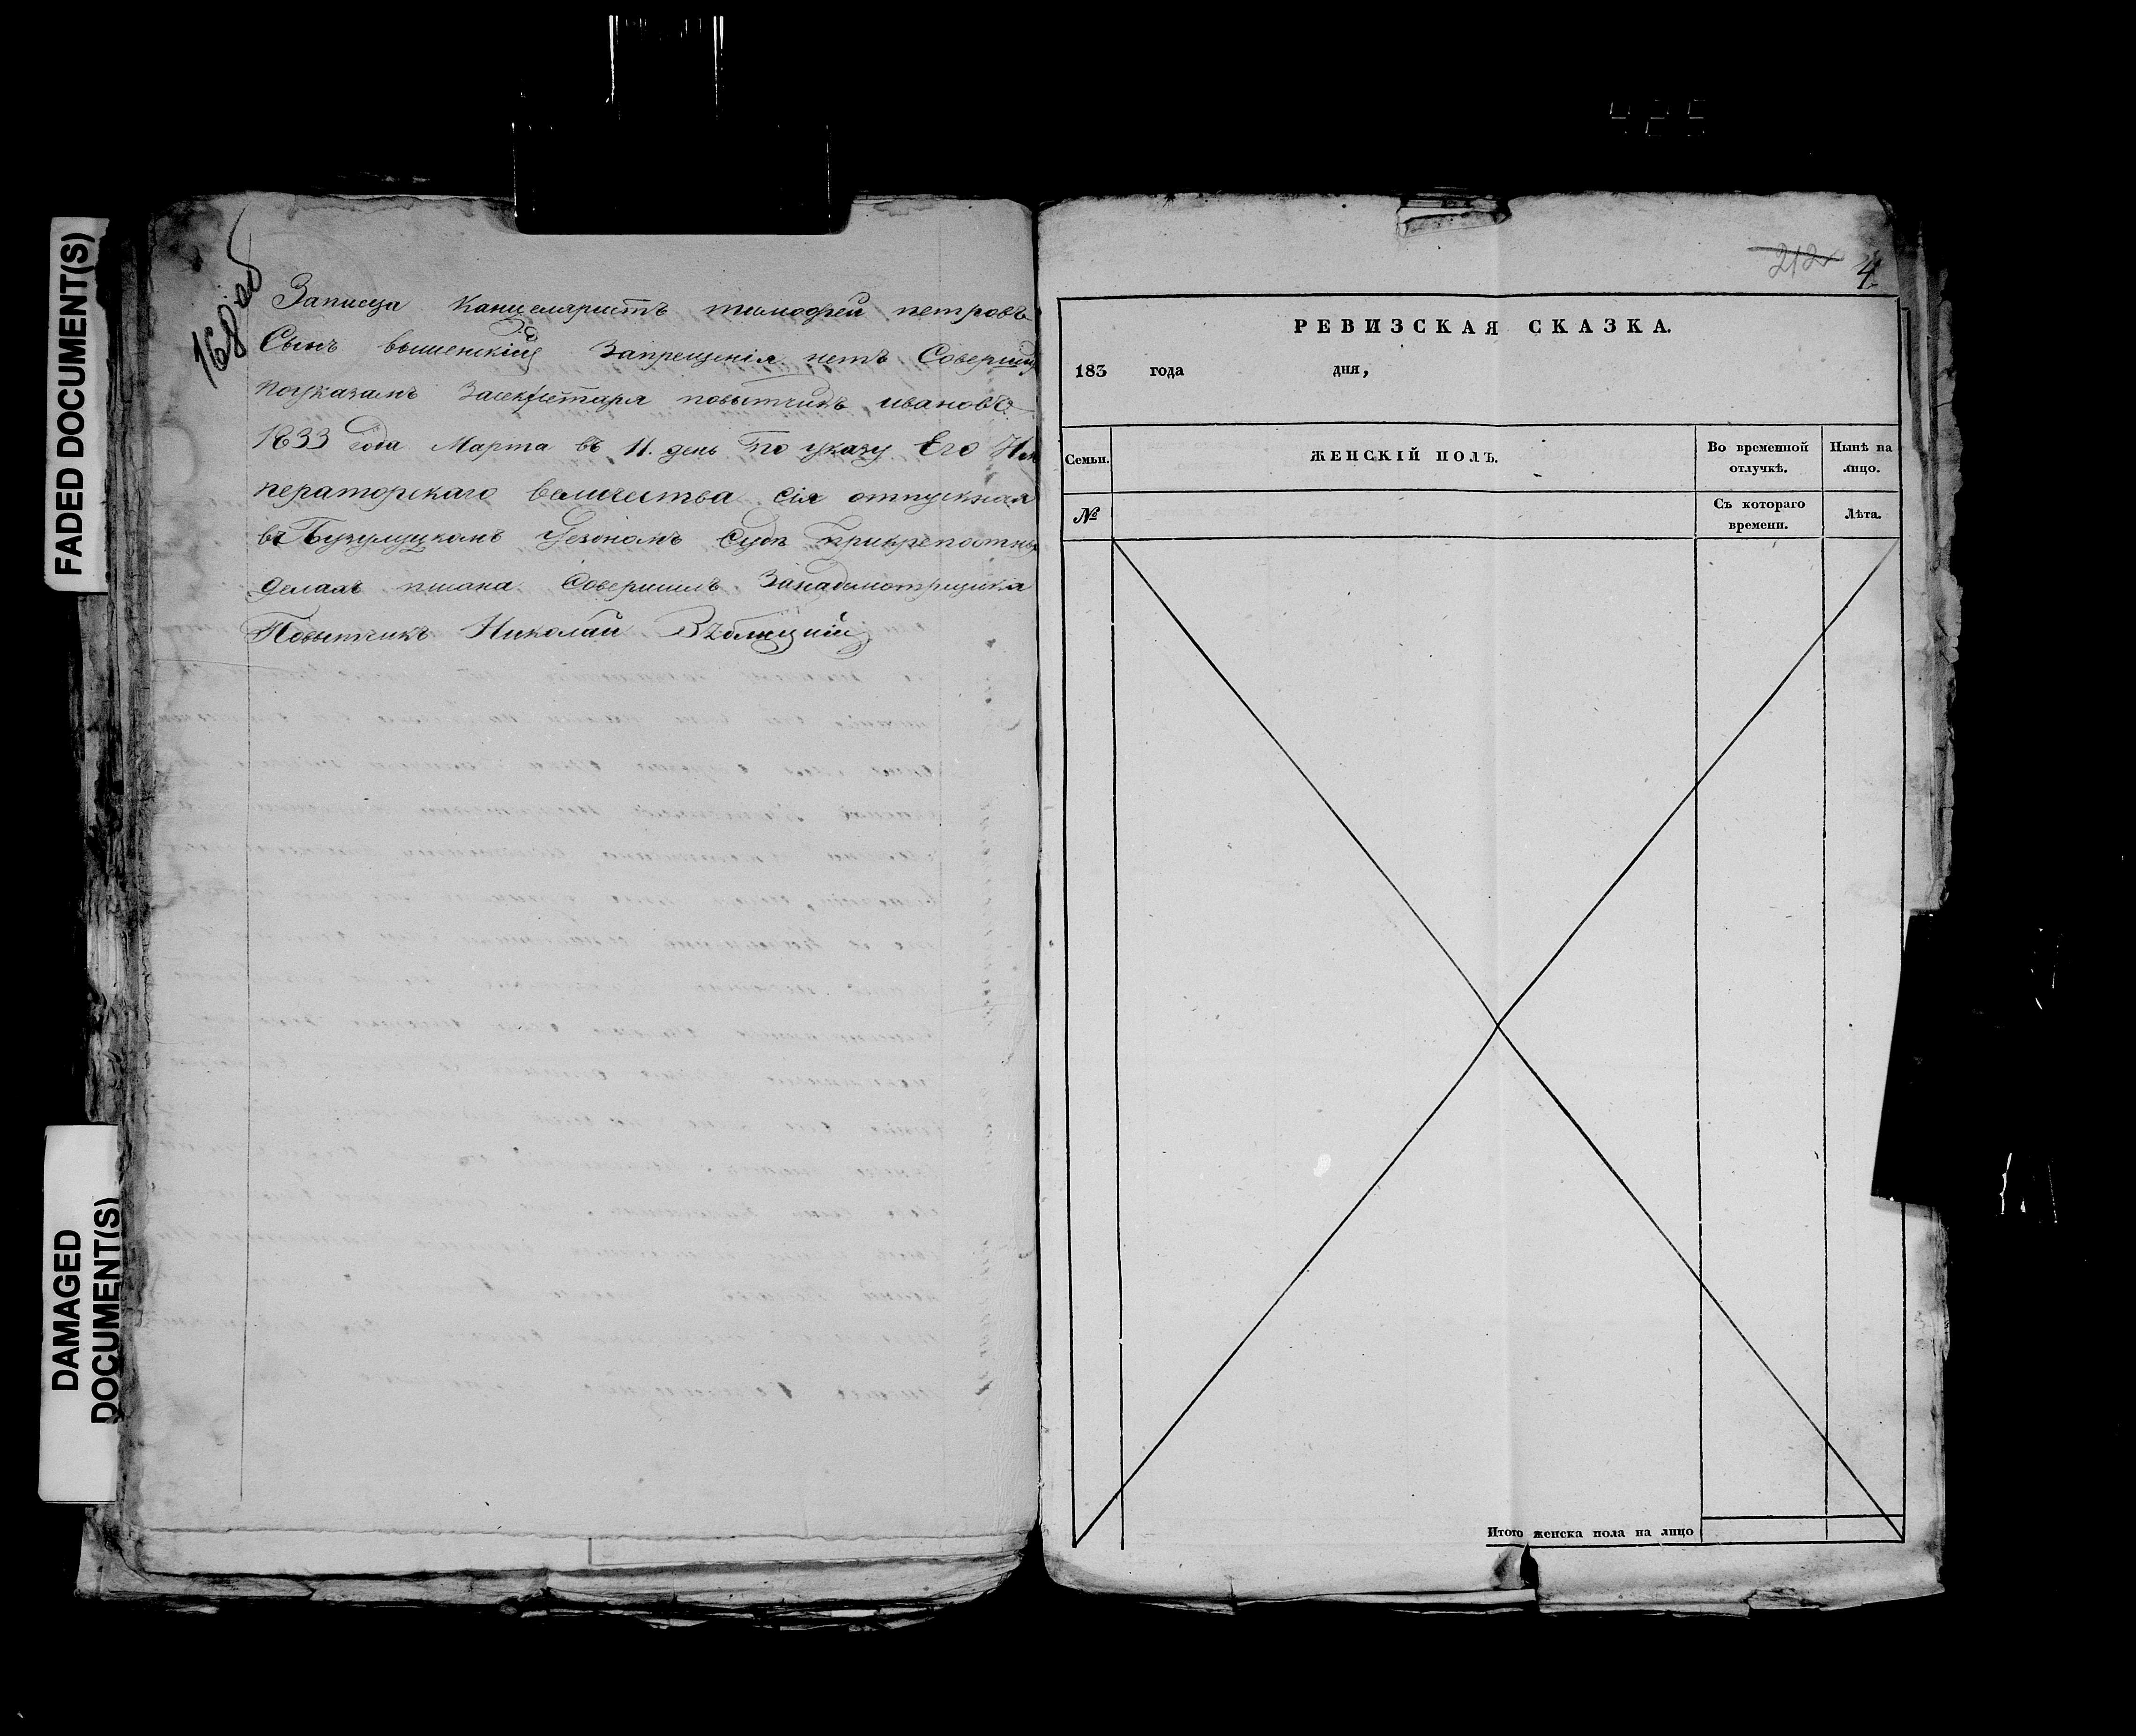 FADED DOCUMENT(S)
DAMAGED
DOCUMENT(S)
168 об
Записца канцеляристъ тимофей петровъ
Сынъ вышенскiй Запрещенiя нетъ Соверши
поуказамъ Засекретаря повытчикъ ивановъ
1833 года Марта въ 11. день По указу Его Им
ператорскаго величества сiя отпускная
въ Бузулуцкомъ Уездномъ Суде Прикрепостны
делахъ писана Совершилъ Занадсмотрщика
Повытчикъ Николай
212 4
РЕВИЗСКАЯ СКАЗКА.
183 года дня,
Семьи. ЖЕНСКІЙ ПОЛЪ. Во временной отлучкѣ. Нынѣ на лицо.
№ Съ котораго времени. Лѣта.
Итого женска пола на лицо